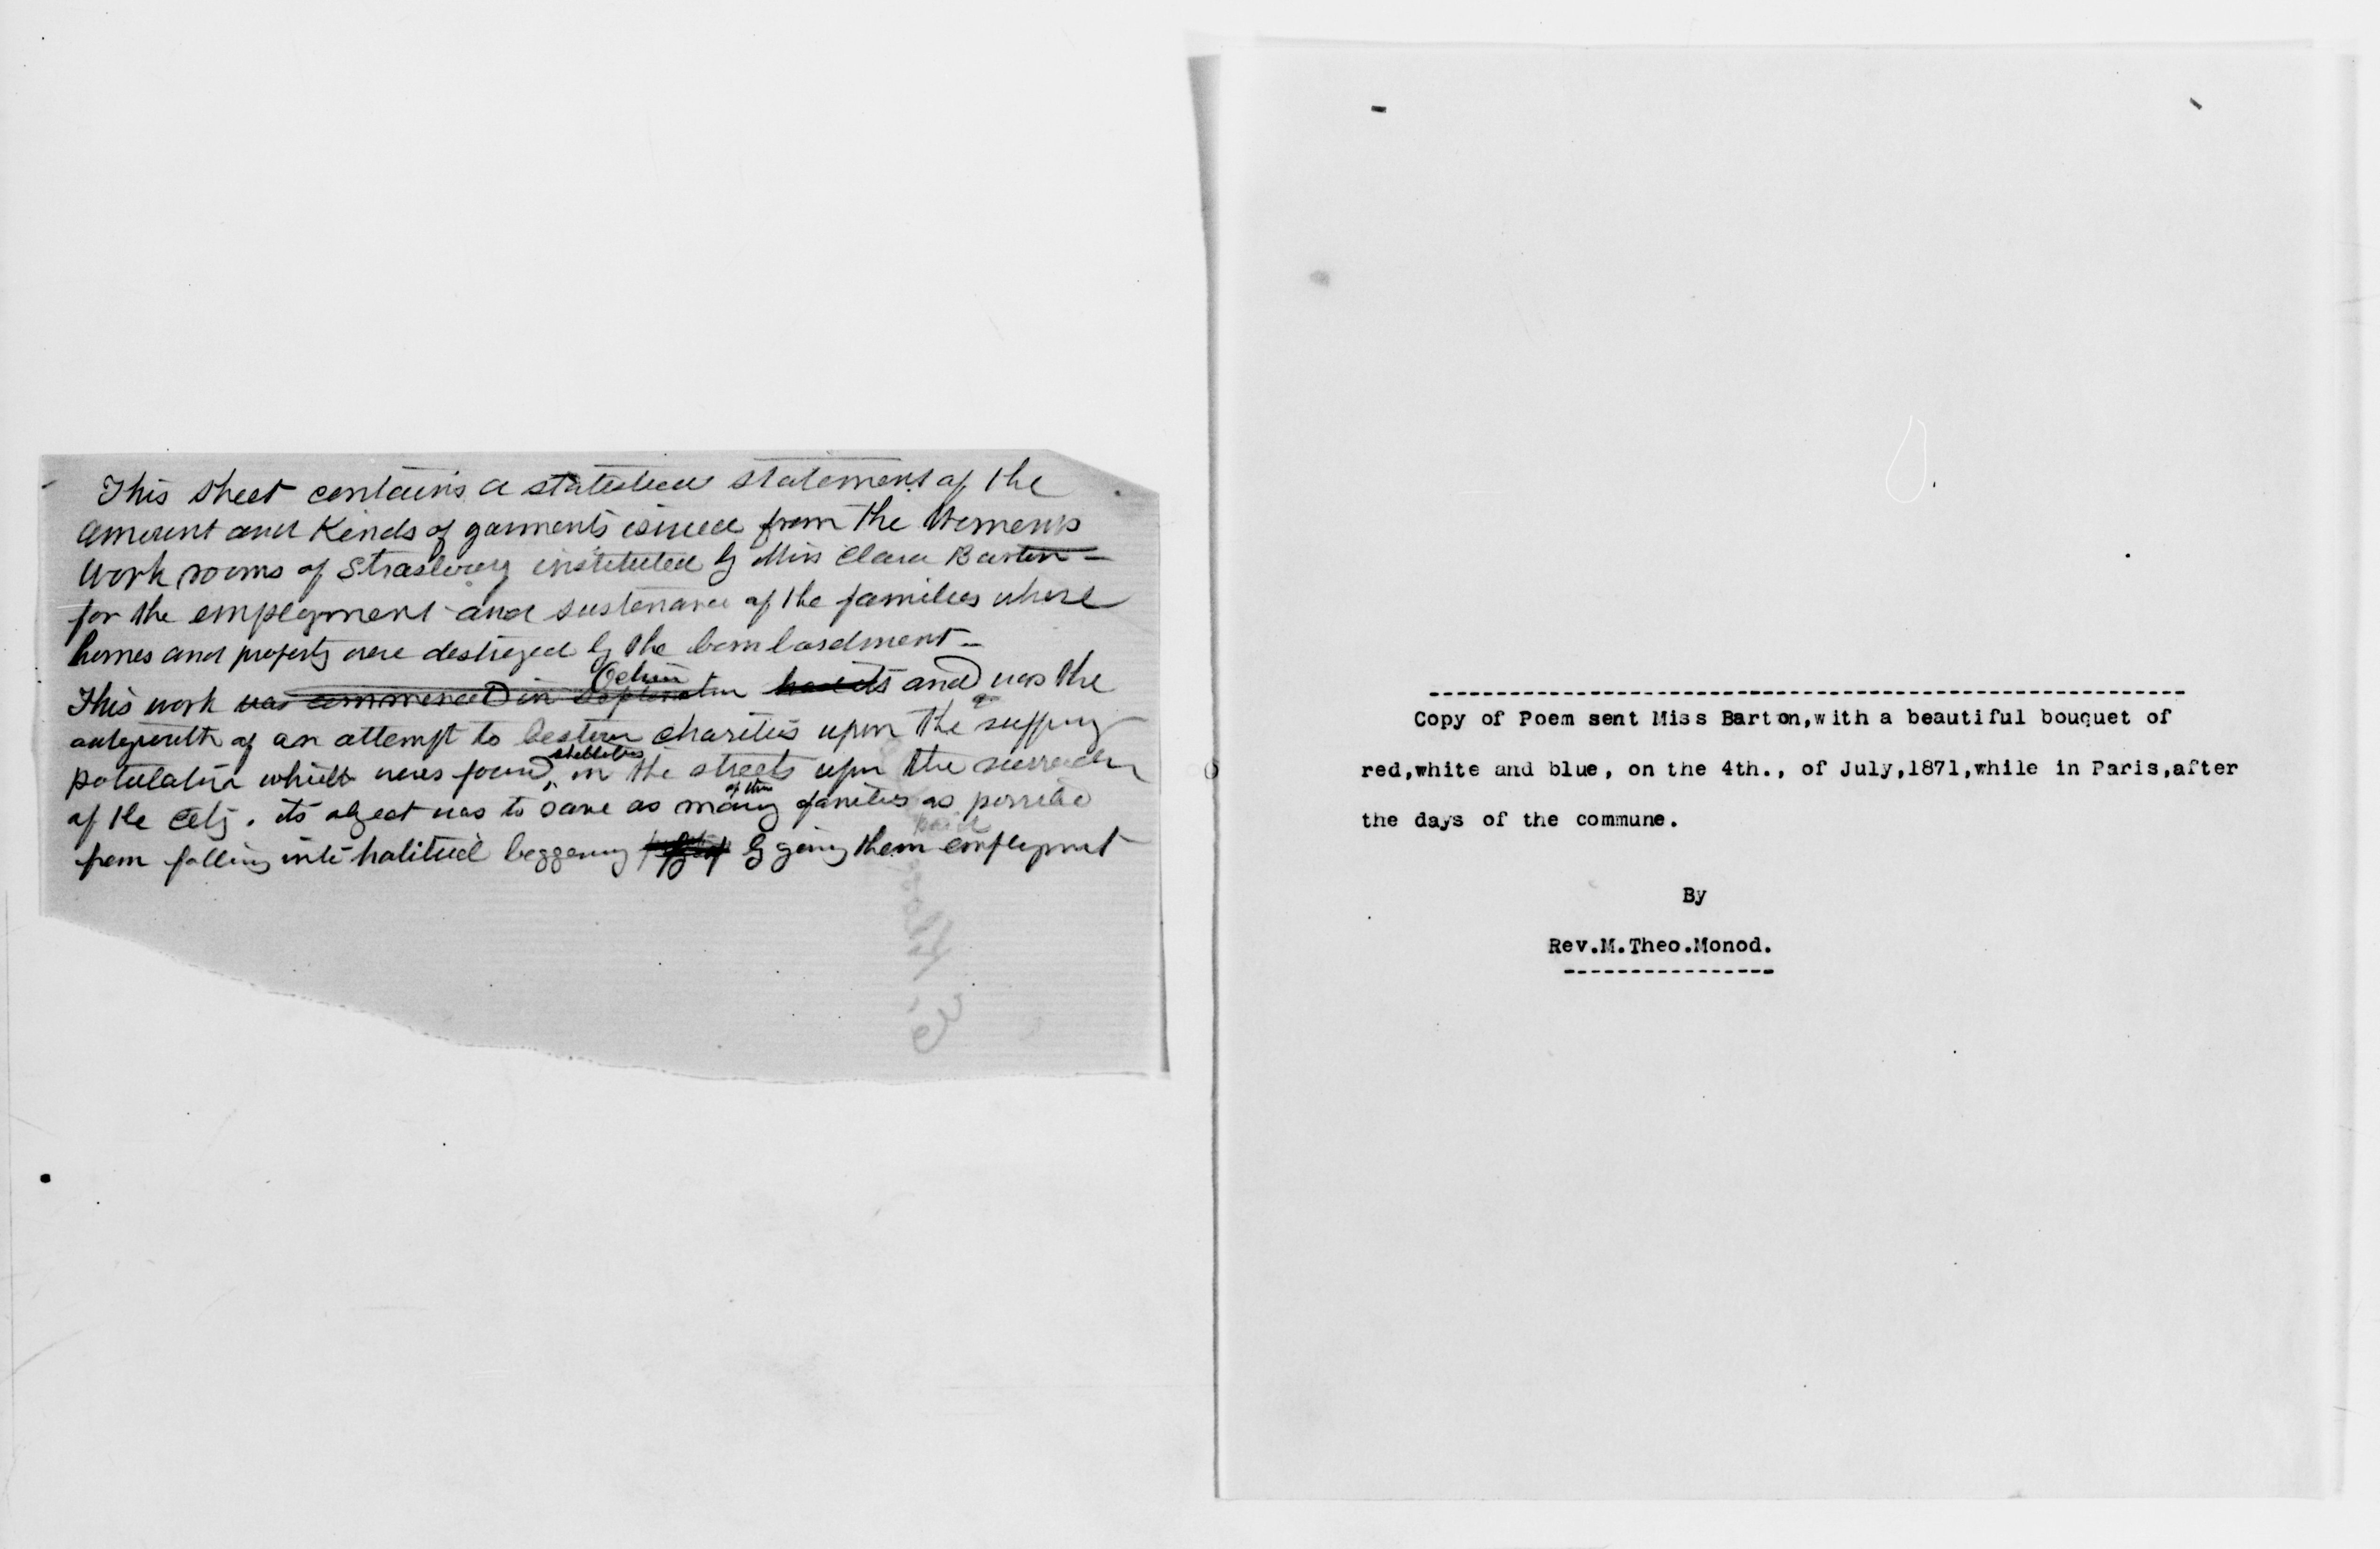 This sheet contains a statistical statement of the
amount and Kinds of garments issued from the Womens
Work rooms of Strasbourg instituted by Miss Clara Barton -
for the employment and sustenance of the families whose
homes and property were destroyed by the bombardment -
This work was commenced in and was the
outgrowth of an attempt to bestow charities upon the suffring
shelterless
population which was found in the streets upon the surrender
of the City. its object was to save as many of these families as possible
paid
from falling into habitual beggarry by giving them employment
Copy of Poem sent Miss Barton,with a beautiful bouquet of
red,white and blue, on the 4th., of July,1871,while in Paris,after
the days of the commune.
By
Rev.M.Theo.Monod.